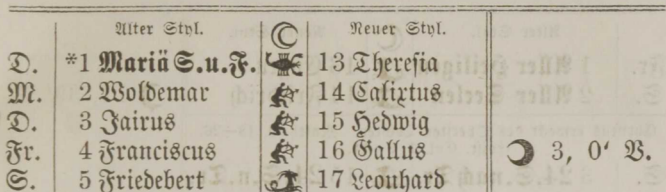 Alter Styl. ☾ Neuer Styl.
D. *1 Mariä S.u.F. 13 Theresia
M. 2 Woldemar 14 Calixtus
D. 3 Jairus 15 Hedwig
Fr. 4 Franciscus 16 Gallus ☽ 3, 0' V.
S. 5 Friedebert 17 Leonhard